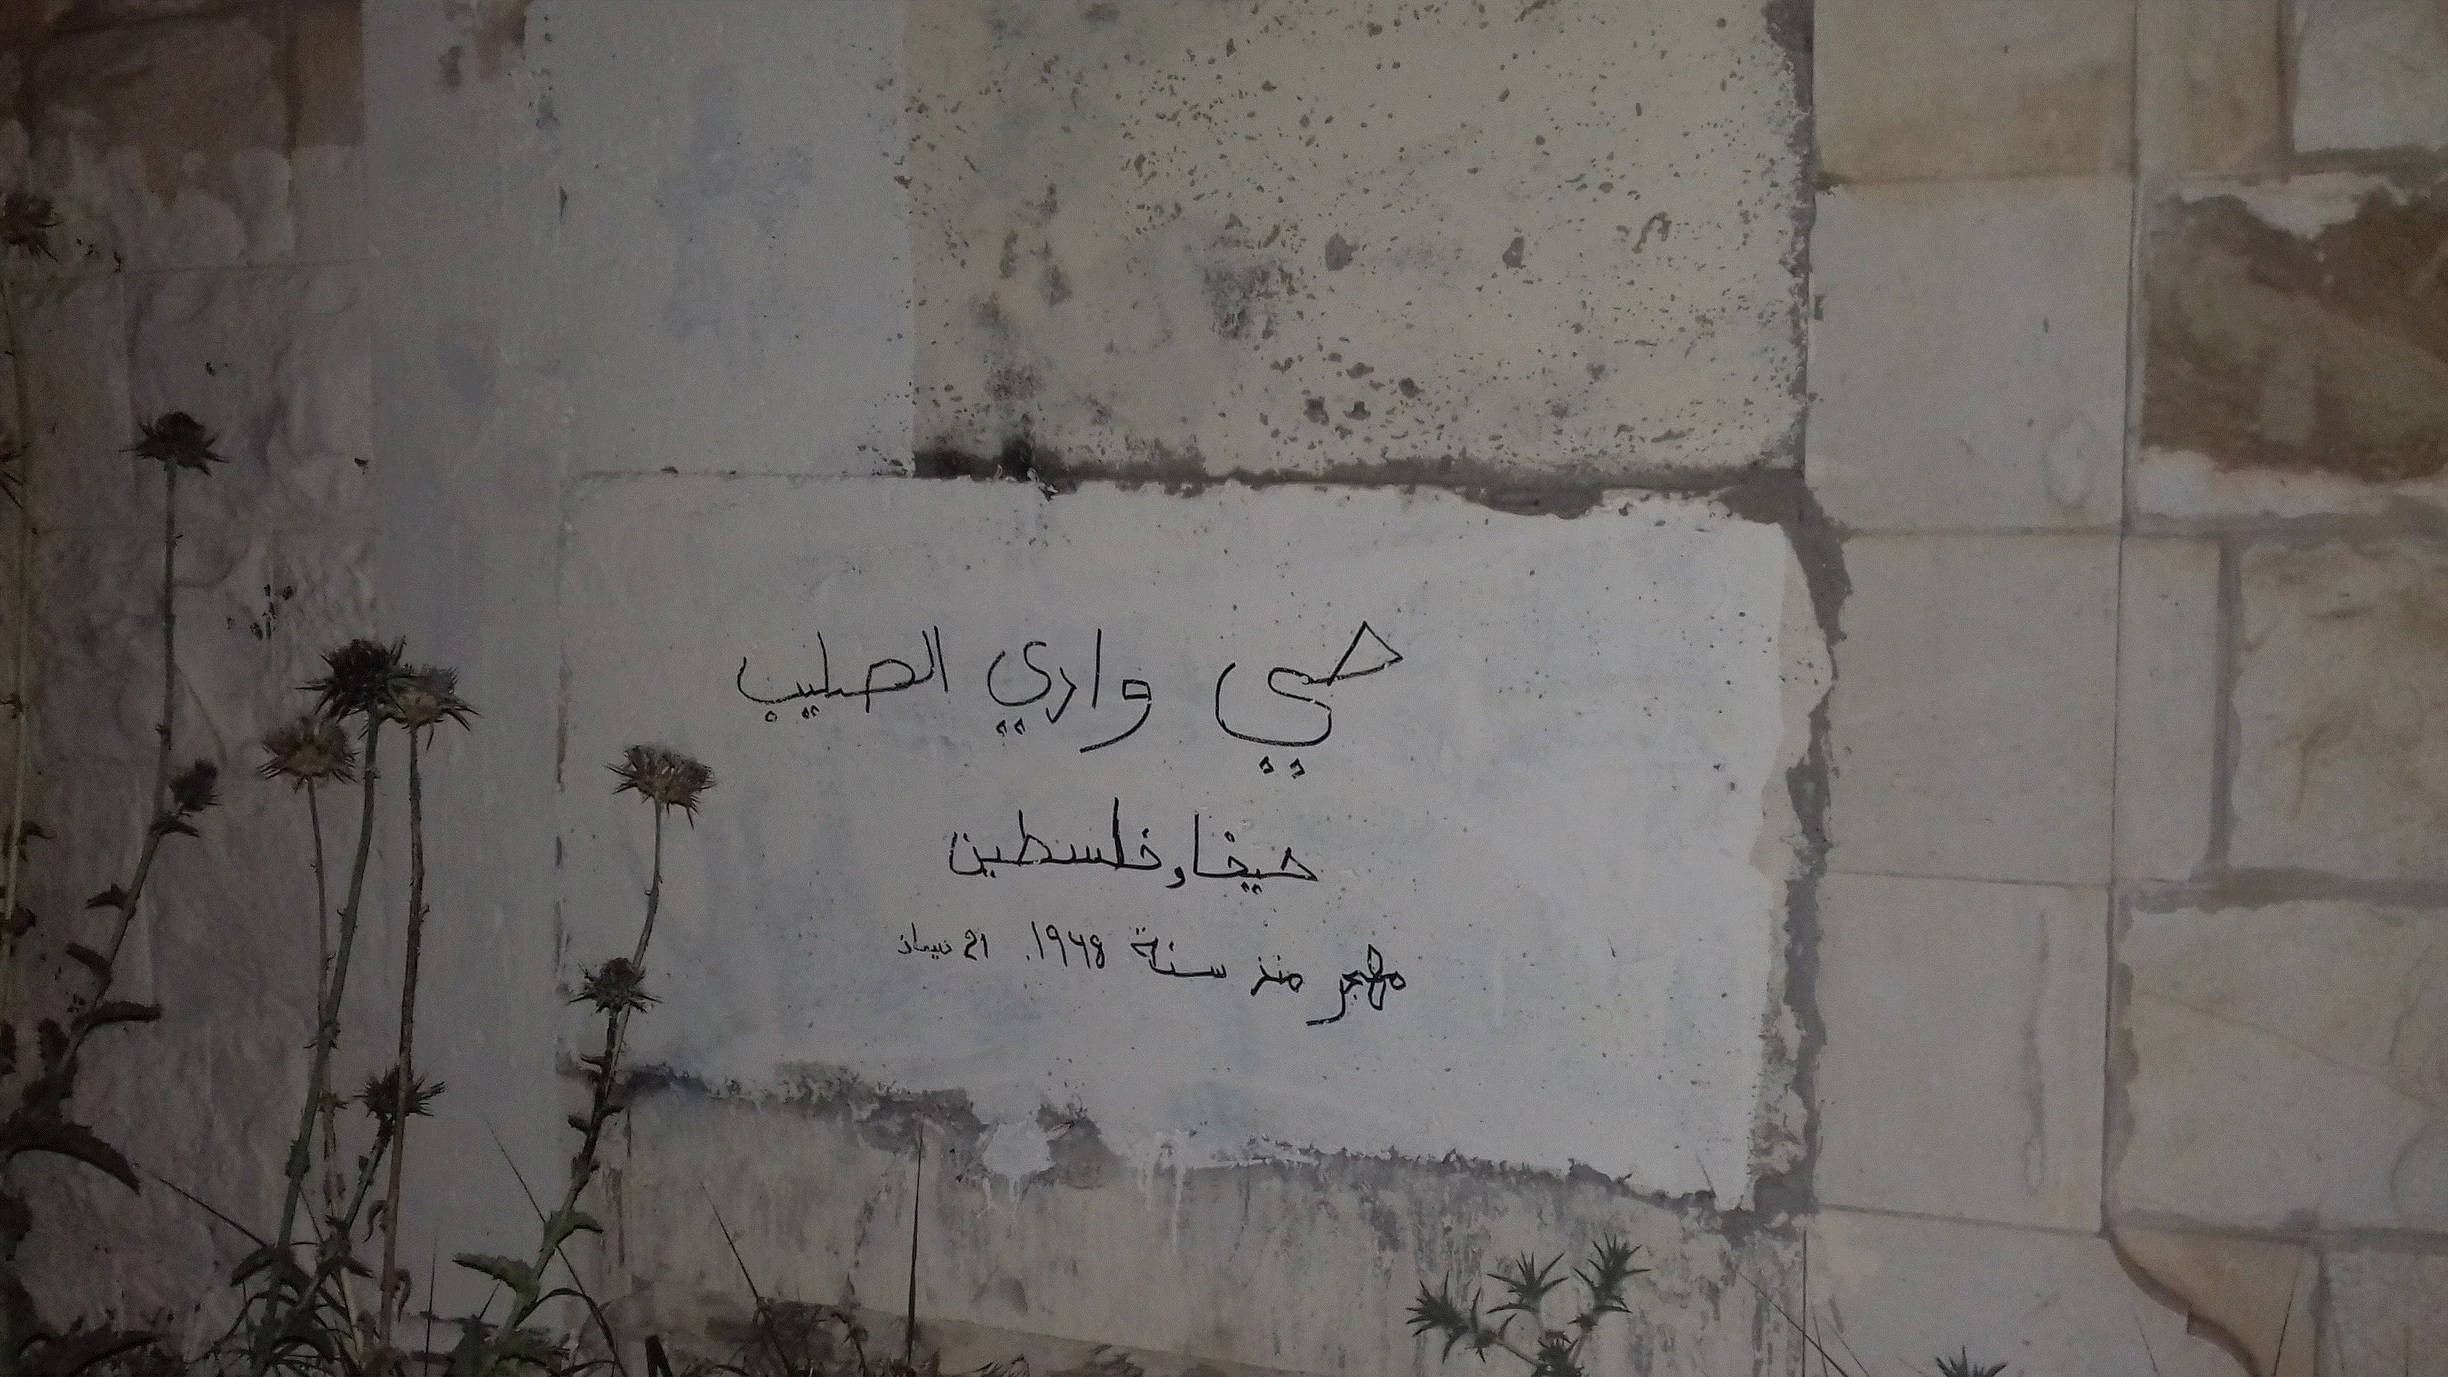 حي وادي الصليب
حيفا وفلسطين
مهجر منذ سنة ١٩٤٨. 21 نيسان